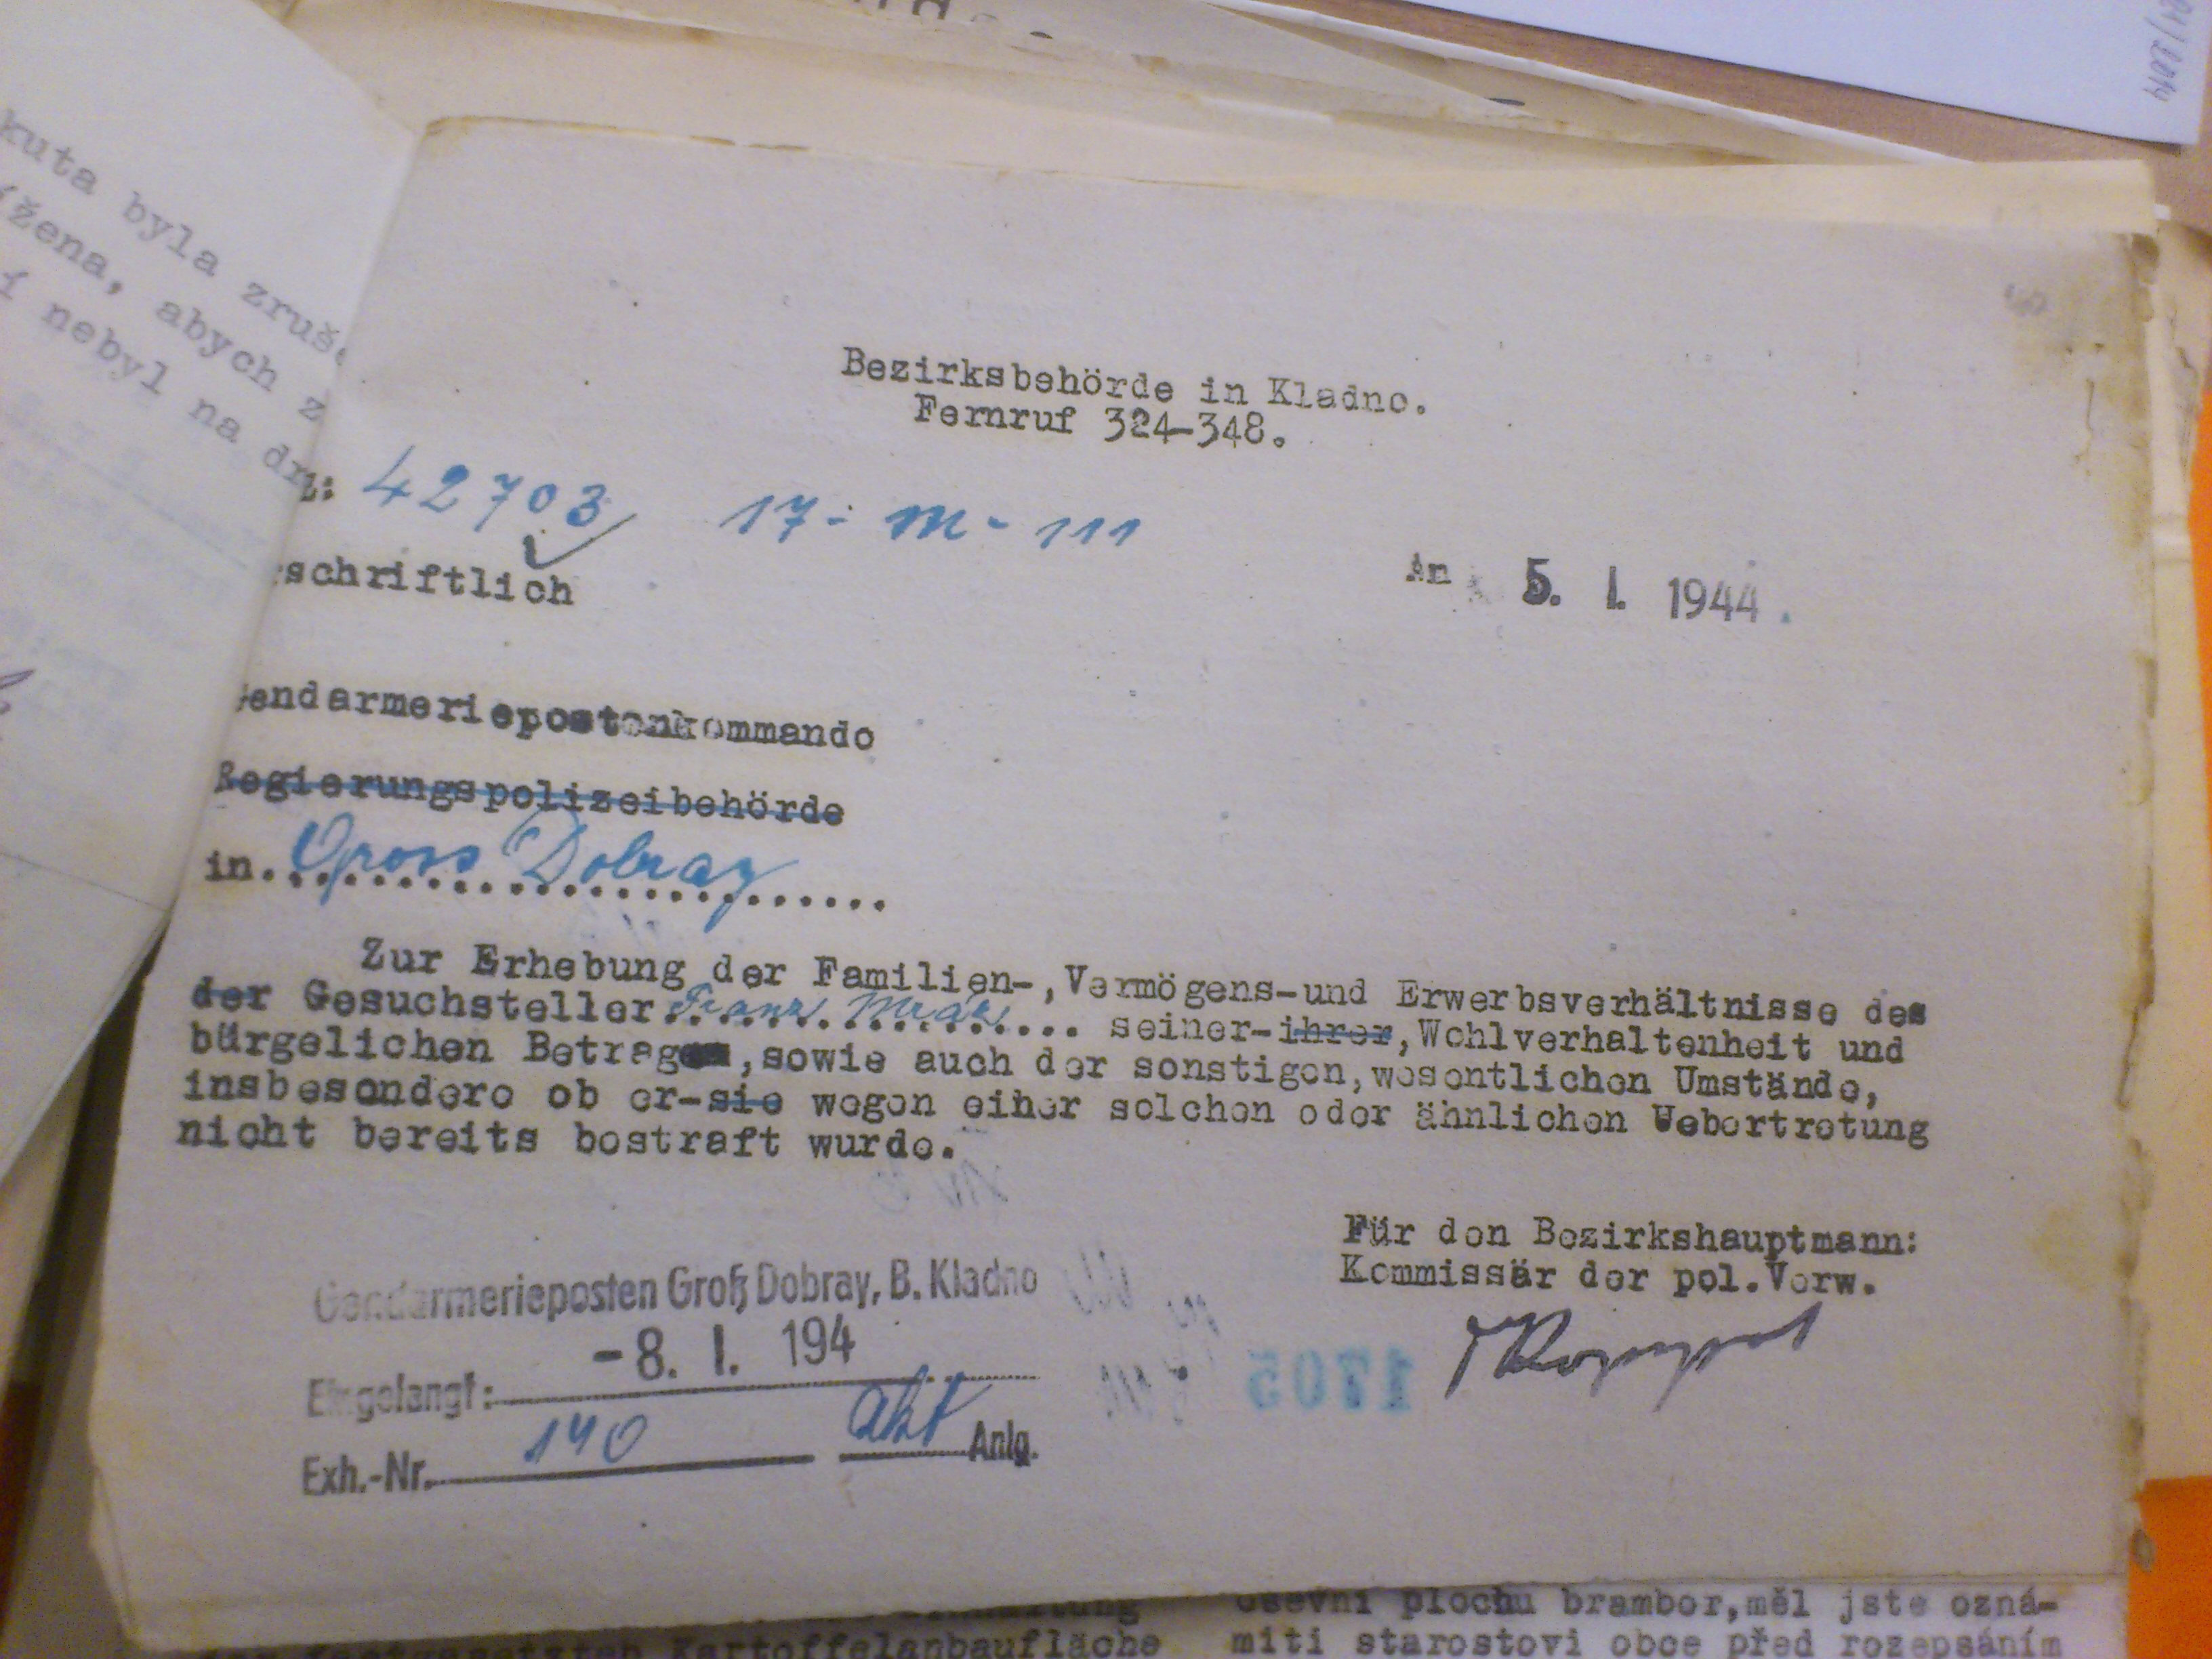 kuta byla zruše
žena, abych z
í nebyl na dr
Bezirksbehörde in Kladno.
Fernruf 324-348.
z: 42703 17-M-111
schriftlich
An 5. I. 1944.
endarmeriepostenkommando
Regierungspolizeibehörde
in. Gross Dobray
Zur Erhebung der Familien-,Vermögens-und Erwerbsverhältnisse des
der Gesuchsteller Franz Mrák seiner-ihrer,Wohlverhaltenheit und
bürgelichen Betragen,sowie auch der sonstigen,wesentlichen Umstände,
insbesondere ob er-sie wegen einer solchen oder ähnlichen Uebertretung
nicht bereits bestraft wurde.
Für den Bezirkshauptmann:
Kommissär der pol.Verw.
Gendarmerieposten Groß Dobray, B. Kladno
Eingelangt: -8. I. 194
Exh.-Nr. 140 Akt Anlg.
1705
osevní plochu brambor,měl jste ozná-
Kartoffelanbaufläche
míti starostovi obce před rozepsáním